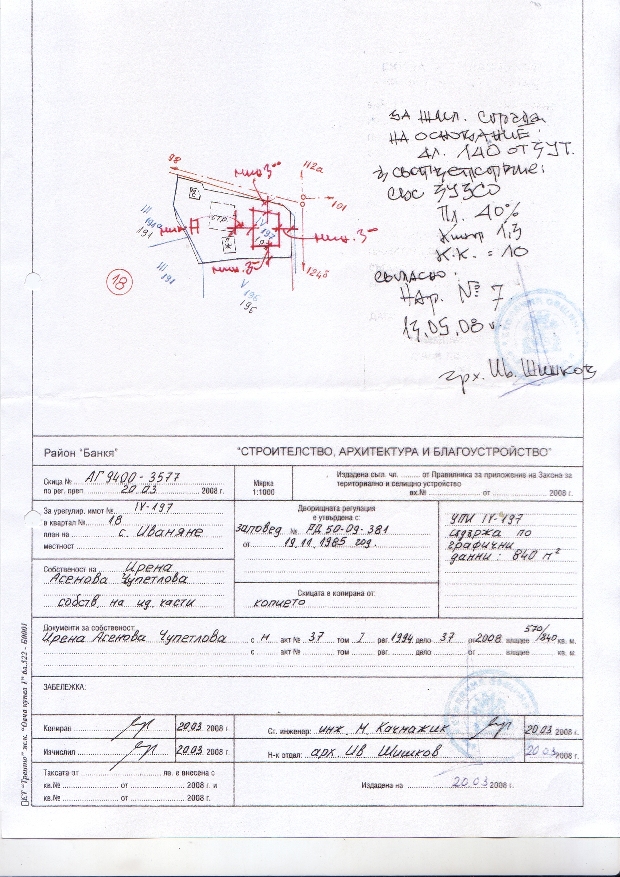 за жил. сграда
на основание:
чл. 140 от ЗУТ.
със ЗУЗСО
Пл. 40%
Кинт 1,3
К.К. = 10
съгласно:
Нар. № 7
13.05.08 г.
арх. Ив. Шишков
98
112а
мин. 3
101
III
191
стр.
IV
197
мин. 3
мин. 3
III
191
V
196
196
124б
18
Район "Банкя" "СТРОИТЕЛСТВО, АРХИТЕКТУРА И БЛАГОУСТРОЙСТВО"
Скица № АГ 9400-3577
по рег. преп. 20.03. 2008 г.
Мярка
1:1000
Издадена съгл. чл. от Правилника за приложение на Закона за
териториално и селищно устройство
вх.№ от 2008 г.
За урегулир. имот № IV-197
в квартал № 18
план на с. Иваняне
местност
Дворищната регулация
е утвърдена с:
заповед № РД 50-09-381
от 19.11.1985 год.
УПИ IV-197
съдържа по
графични
данни: 840 м²
Собственост на Ирена
Асенова Чупетлова
собств. на ид. части
Скицата е копирана от:
копието
Документи за собственост:
Ирена Асенова Чупетлова с н. акт № 37 том I рег. 1994 дело 37 от 2008. владее 570/840 кв. м.
с акт № том рег. дело от владее кв. м.
ЗАБЕЛЕЖКА:
Копирал 20.03 2008 г.
Ст. инженер: инж. М. Качмажик 20.03 2008 г.
Изчислил 20.03. 2008 г.
Н-к отдел: арх. Ив. Шишков 20.03 2008 г.
Таксата от лв. е внесена с
кв.№ от 2008 г. и
кв.№ от 2008 г.
Издадена на 20.03 2008 г.